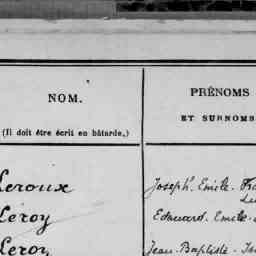 NOM.
(Il doit être écrit en bâtarde.)
PRÉNOMS
ET SURNOMS
Leroux
Joseph Emile-
Leroy
Edouard-Emile-
Leroy
Jean-Baptiste-